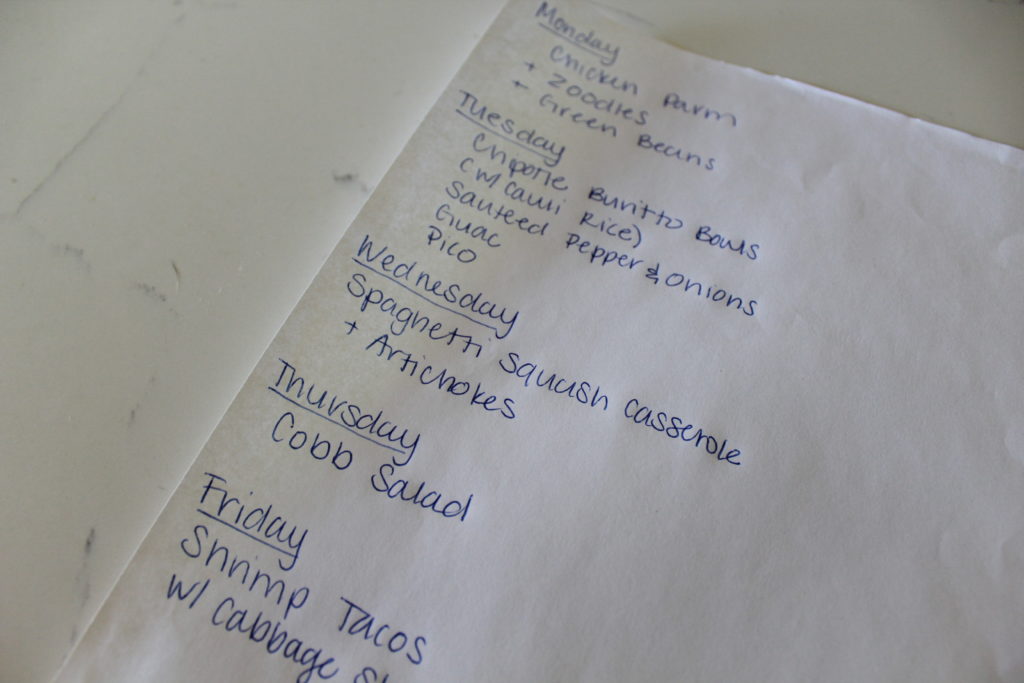 Monday
Chicken Parm
+ Zoodles
+ Green Beans
Tuesday
Chipotle Burrito Bowls
(w/ Cauli Rice)
Sauteed Pepper & Onions
Guac
Pico
Wednesday
Spaghetti Squash Casserole
+ Artichokes
Thursday
Cobb Salad
Friday
Shrimp Tacos
w/ Cabbage